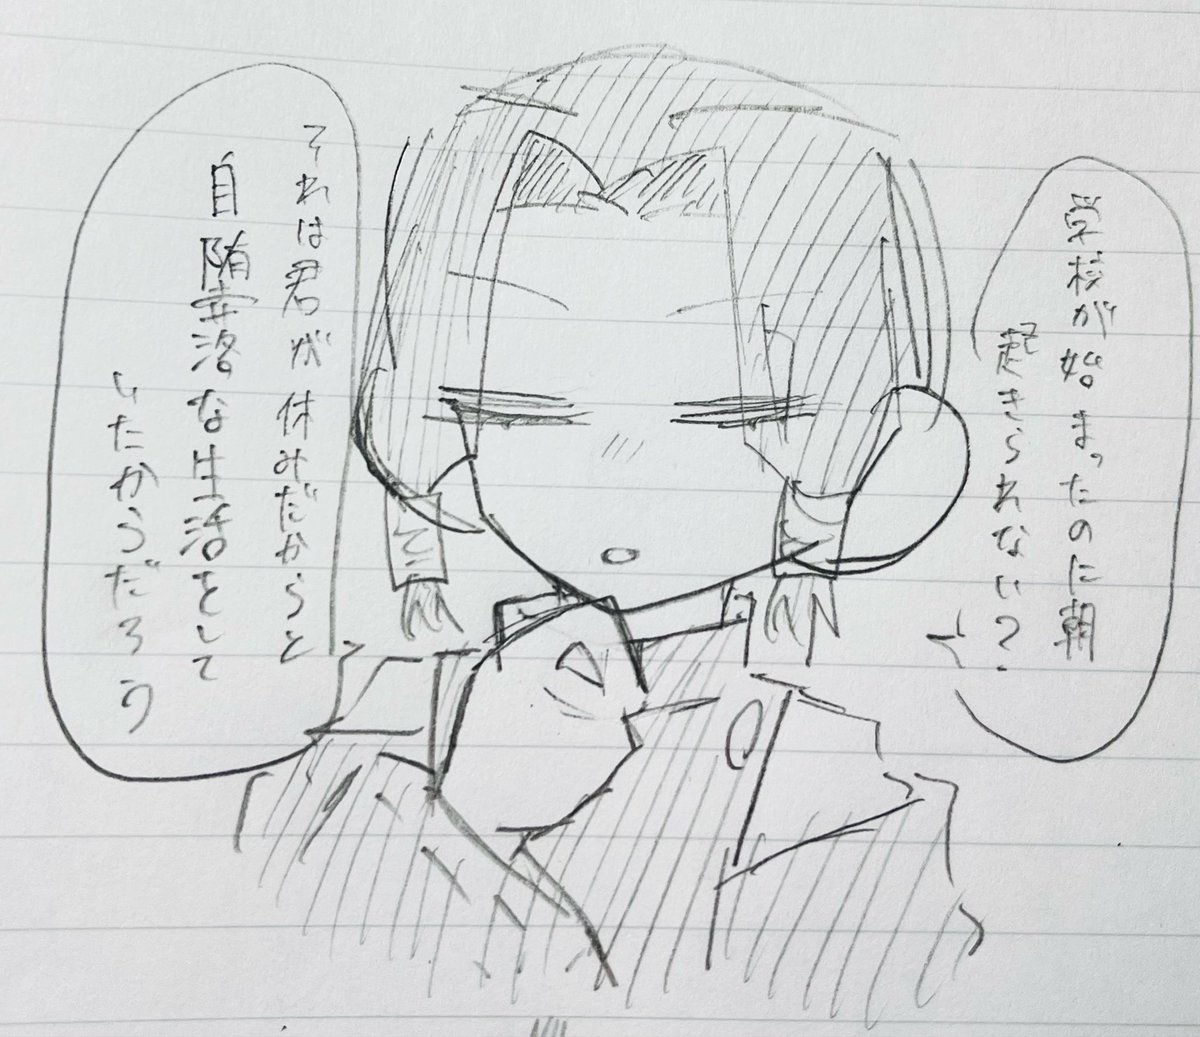 学校が始まったのに朝
起きられない？
それは君が休みだからと
自堕落な生活をして
いたからだろう